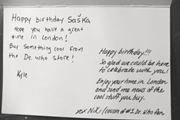 Happy birthday Saška
Hope you have a great
time in London!
Buy something cool from
the Dr. who store!
Kyle
Happy birthday!!!
So glad we could be here
to celebrate with you!
Enjoy your time in London
and send me news of the
cool stuff you buy.
your Niki / cousin of #1 Dr. Who fan